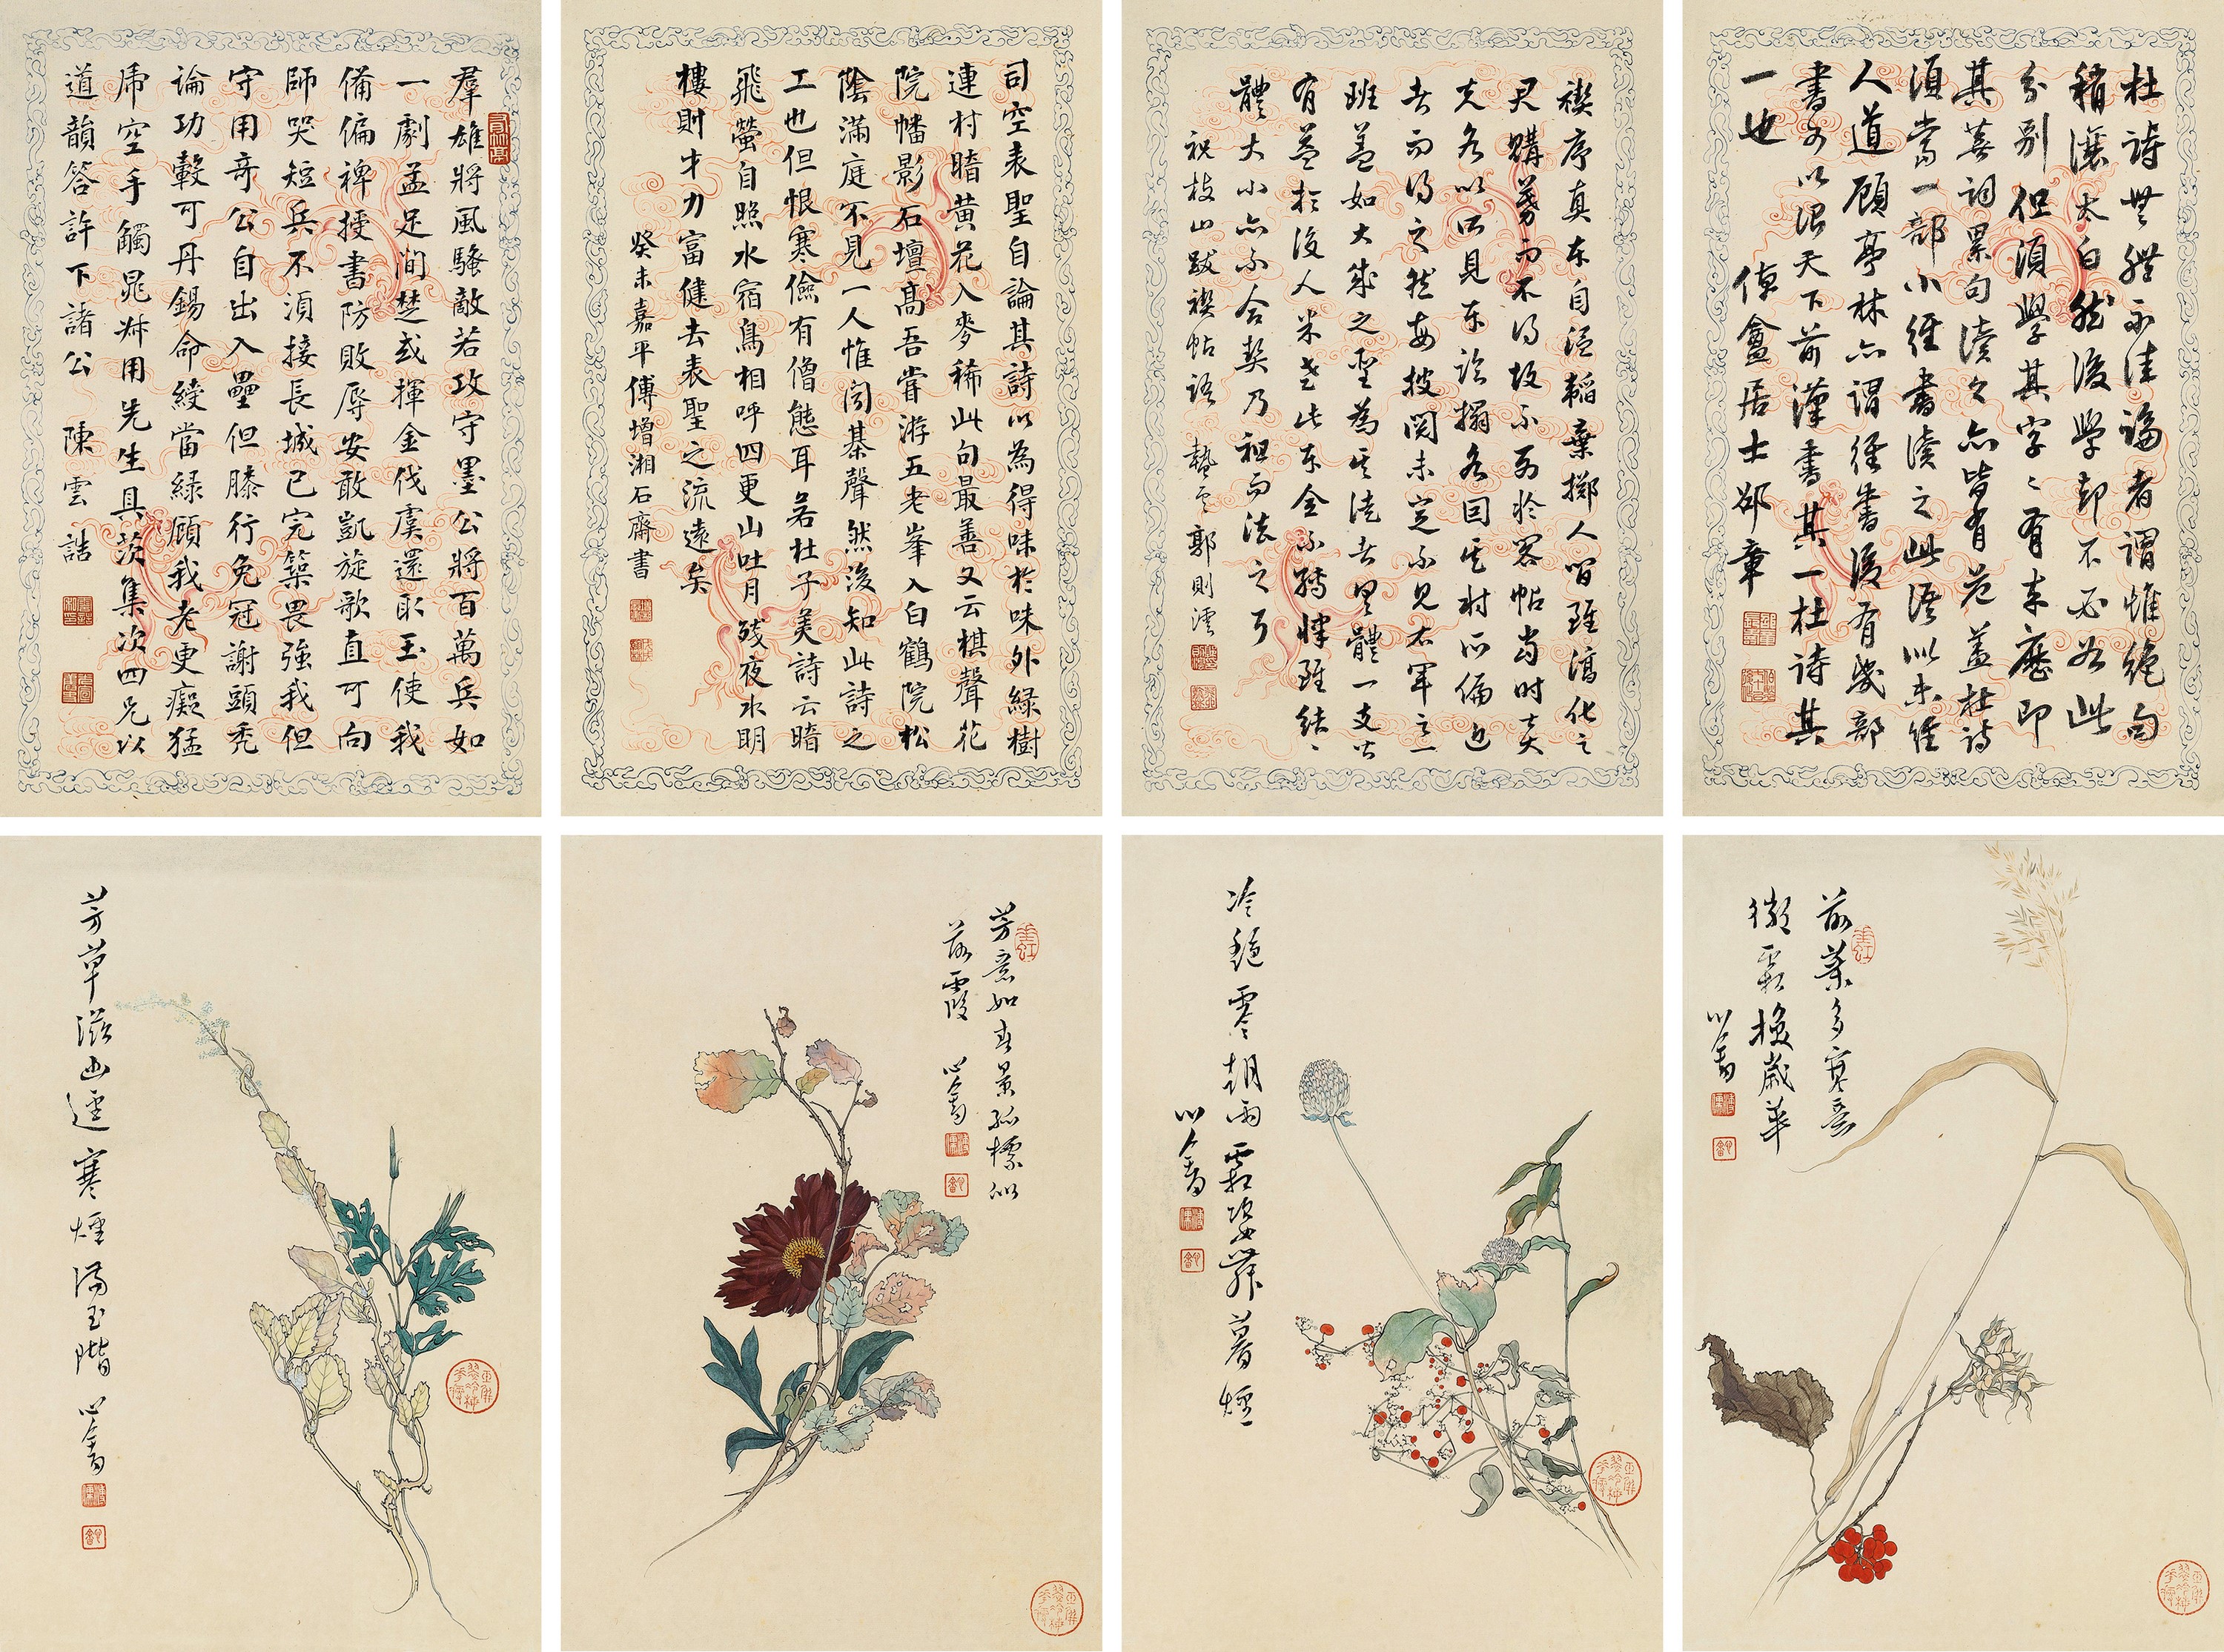 杜詩無體不佳論者謂惟絕句
稍讓太白然後學卻不必如此
分別但須學其字字有來歷即
其 詞累句讀之亦皆有 蓋杜詩
須當一部小經書讀之此語似未經
人道顧亭林亦謂經書後有幾部
書可以治天下前漢書其一杜詩其
一也 倬盦居士邵章
禊序真本自溫韜棄擲人間雖 化之
購募而不得故不列於閣帖當時
各以所見本臨搨各因其材所偏近
者而得之然每披閱未 不見右軍之一
班蓋如大成之聖為其徒者 體一支皆
有益於後人米老此本全不縛律雖結
體大小亦不合契乃祖而法之耳
祝枝山跋禊帖語 蟄雲郭則澐
司空表聖自論其詩以為得味於味外綠樹
連村暗黃花入麥稀此句最善又云棋聲花
院幡影石壇高吾嘗游五老峯入白鶴院松
陰滿庭不見一人惟聞棊聲然後知此詩之
工也但恨寒儉有僧態耳若杜子美詩云暗
飛螢自照水宿鳥相呼四更山吐月殘夜水明
樓則才力富健去表聖之流遠矣
癸未嘉平傅增湘石齋書
羣雄將風騷敵若攻守墨公將百萬兵如
一劇孟足間楚或揮金伐虞還取玉使我
備偏裨授書防敗辱安敢凱旋歌直可向
師哭短兵不須接長城已完築畏強我但
守用奇公自出入壘但膝行免冠謝頭禿
論功轂可丹錫命綬當綠顧我老更癡猛
虎空手觸晁叔用先生具茨集次四兄以
道韻答許下諸公 陳雲誥
前葉多寒意
微霜換歲華
心畬
冷艷零朝雨霜姿舞暮煙
心畬
芳意如春景孤標似
落霞 心畬
芳草滋幽逕寒煙滿玉階 心畬